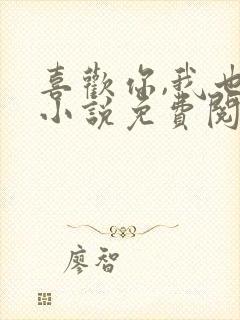 喜歡你,我也
小說免費閱
廖智